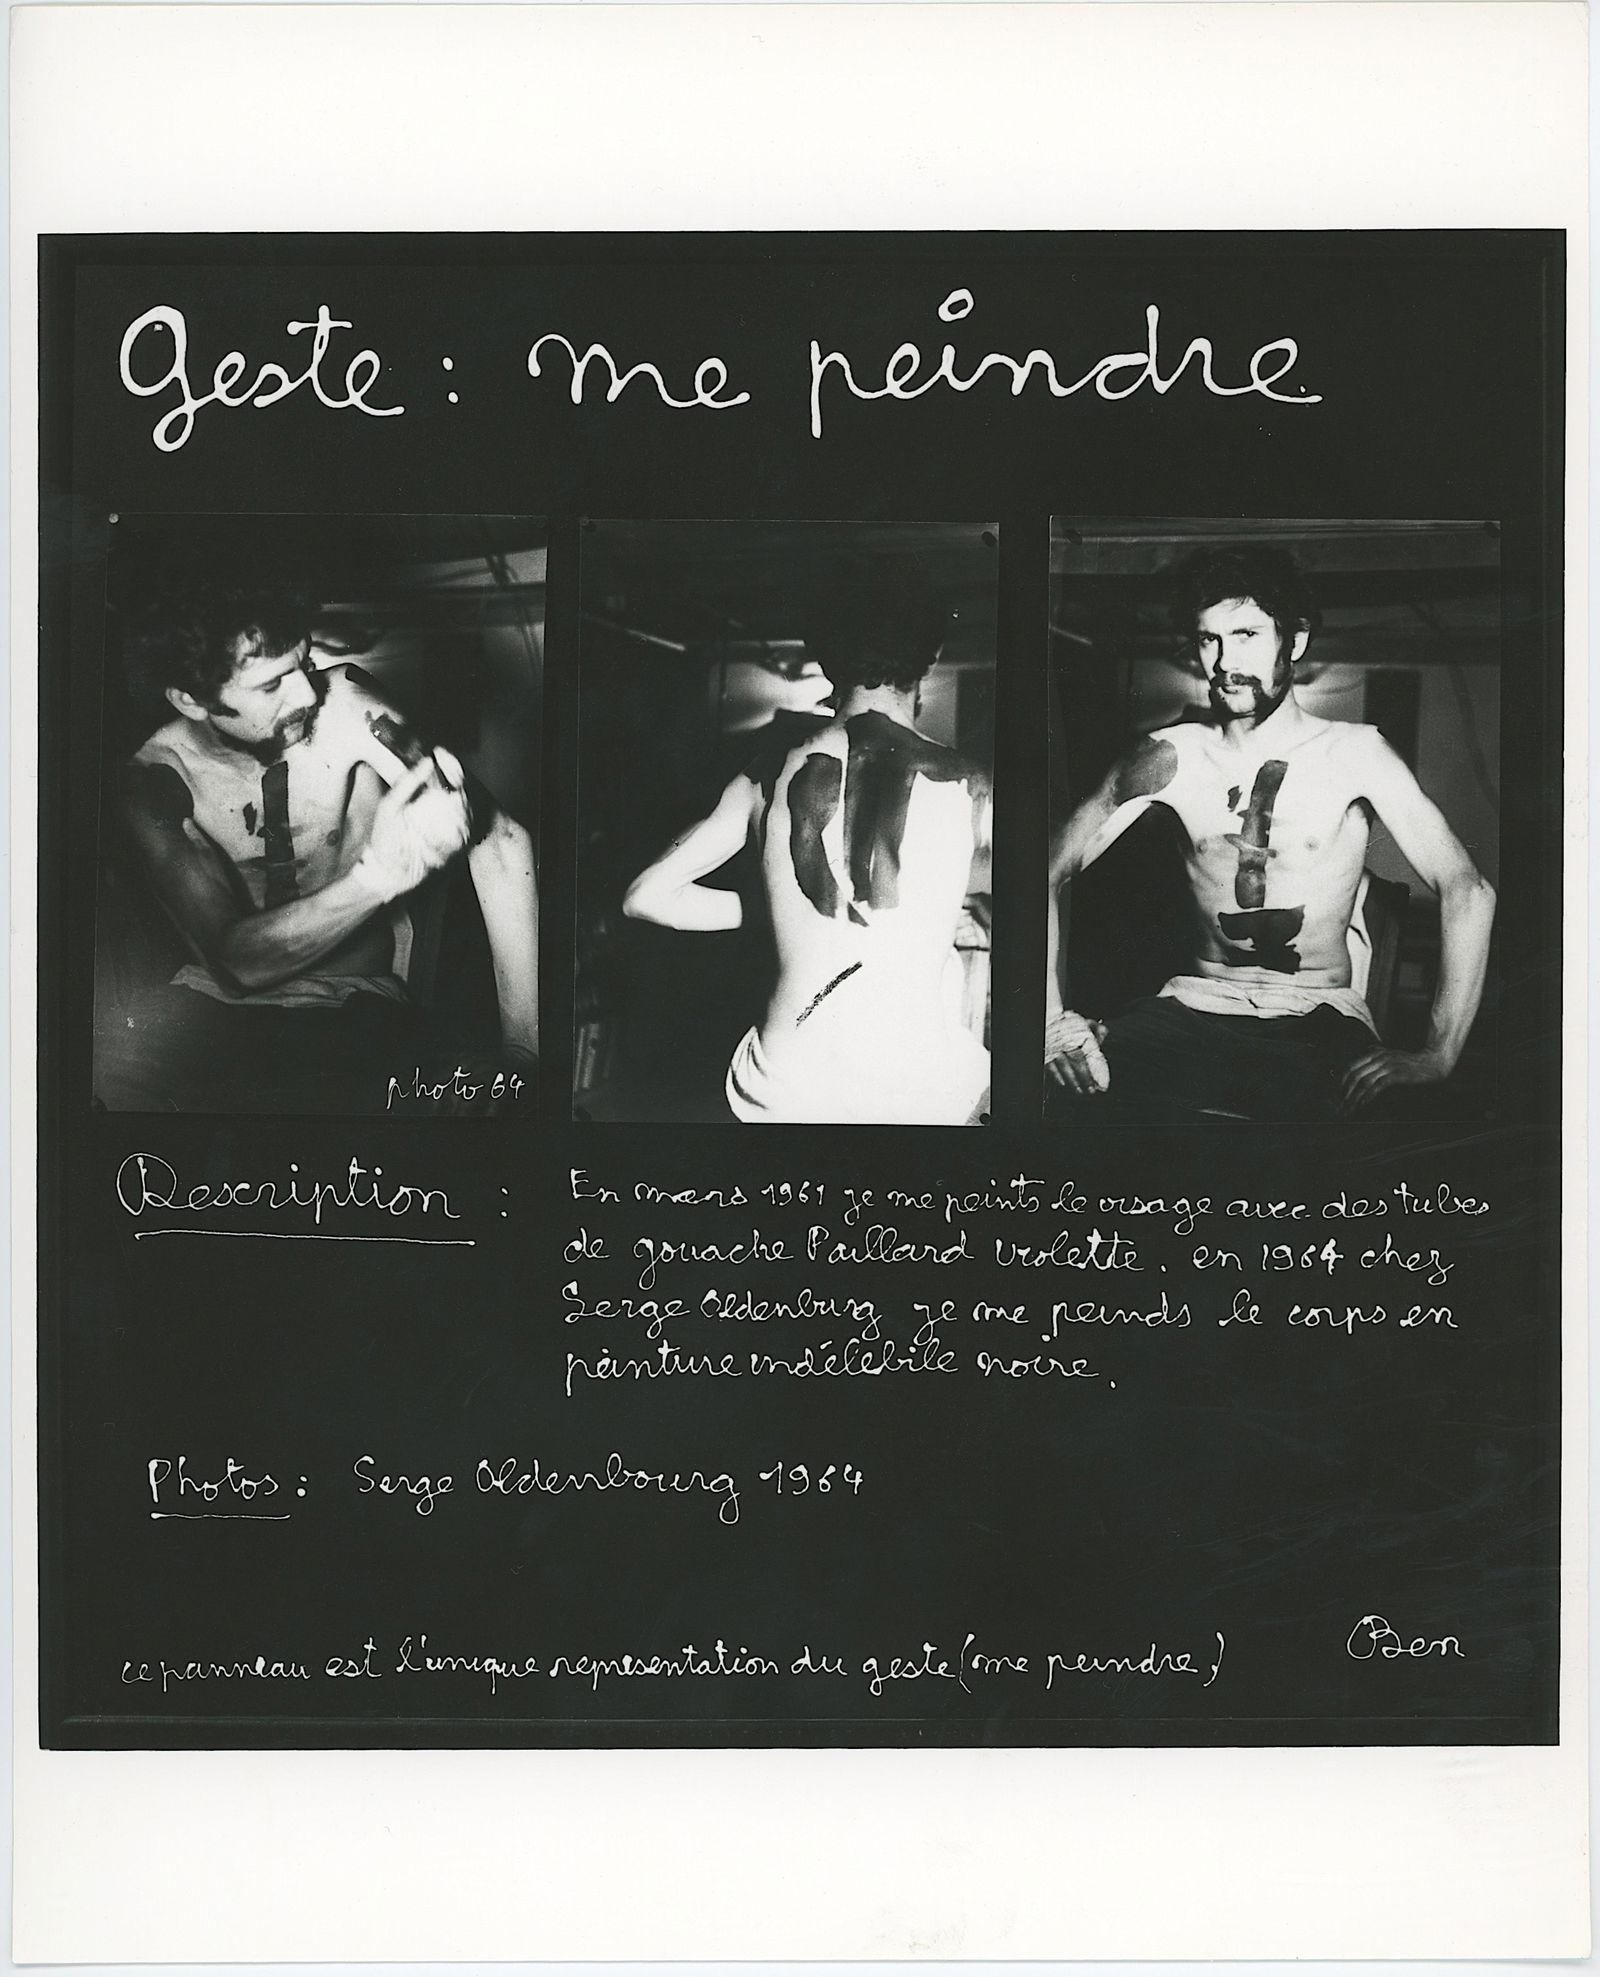 Geste : me peindre
photo 64
Description :
En mars 1961 je me peints le visage avec des tubes
de gouache Paillard violette. en 1964 chez
Serge Oldenburg je me peinds le corps en
peinture indélébile noire.
Photos : Serge Oldenbourg 1964
ce panneau est l'unique representation du geste (me peindre)
Ben